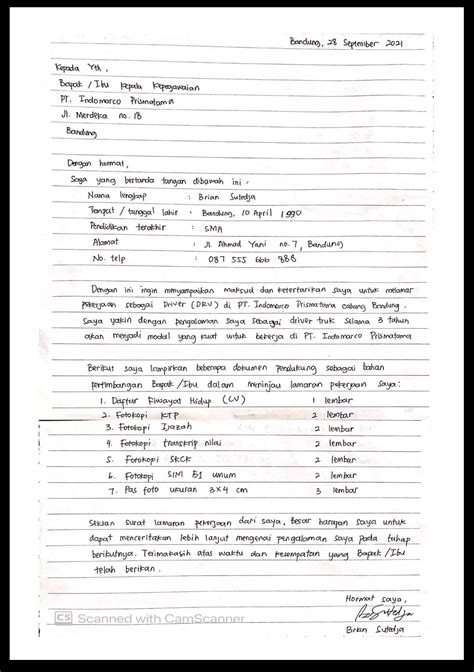 Bandung, 28 September 2021
Kepada Yth,
Bapak / Ibu Kepala Kepegawaian
PT. Indomarco Prismatama
Jl. Merdeka no. 18
Bandung
Dengan hormat,
Saya yang bertanda tangan dibawah ini :
Nama lengkap : Brian Sutedja
Tempat / tanggal lahir : Bandung, 10 April 1990
Pendidikan terakhir : SMA
Alamat : Jl Ahmad Yani no. 7, Bandung
No. telp : 087 555 666 888
Dengan ini ingin menyampaikan maksud dan ketertarikan saya untuk melamar
pekerjaan sebagai Driver (DRV) di PT. Indomarco Prismatama cabang Bandung.
Saya yakin dengan pengalaman saya sebagai driver truk selama 3 tahun
akan menjadi modal yang kuat untuk bekerja di PT. Indomarco Prismatama
Berikut saya lampirkan beberapa dokumen pendukung sebagai bahan
pertimbangan Bapak / Ibu dalam meninjau lamaran pekerjaan saya:
1. Daftar Riwayat Hidup (CV) 1 lembar
2. Fotokopi KTP 2 lembar
3. Fotokopi Ijazah 2 lembar
4. Fotokopi transkrip nilai 2 lembar
5. Fotokopi SKCK 2 lembar
6. Fotokopi SIM B1 umum 2 lembar
7. Pas foto ukuran 3x4 cm 3 lembar
Sekian surat lamaran pekerjaan dari saya, besar harapan saya untuk
dapat menceritakan lebih lanjut mengenai pengalaman saya pada tahap
berikutnya. Terimakasih atas waktu dan kesempatan yang Bapak / Ibu
telah berikan.
Hormat saya,
Sutedja
Brian Sutedja
CS Scanned with CamScanner